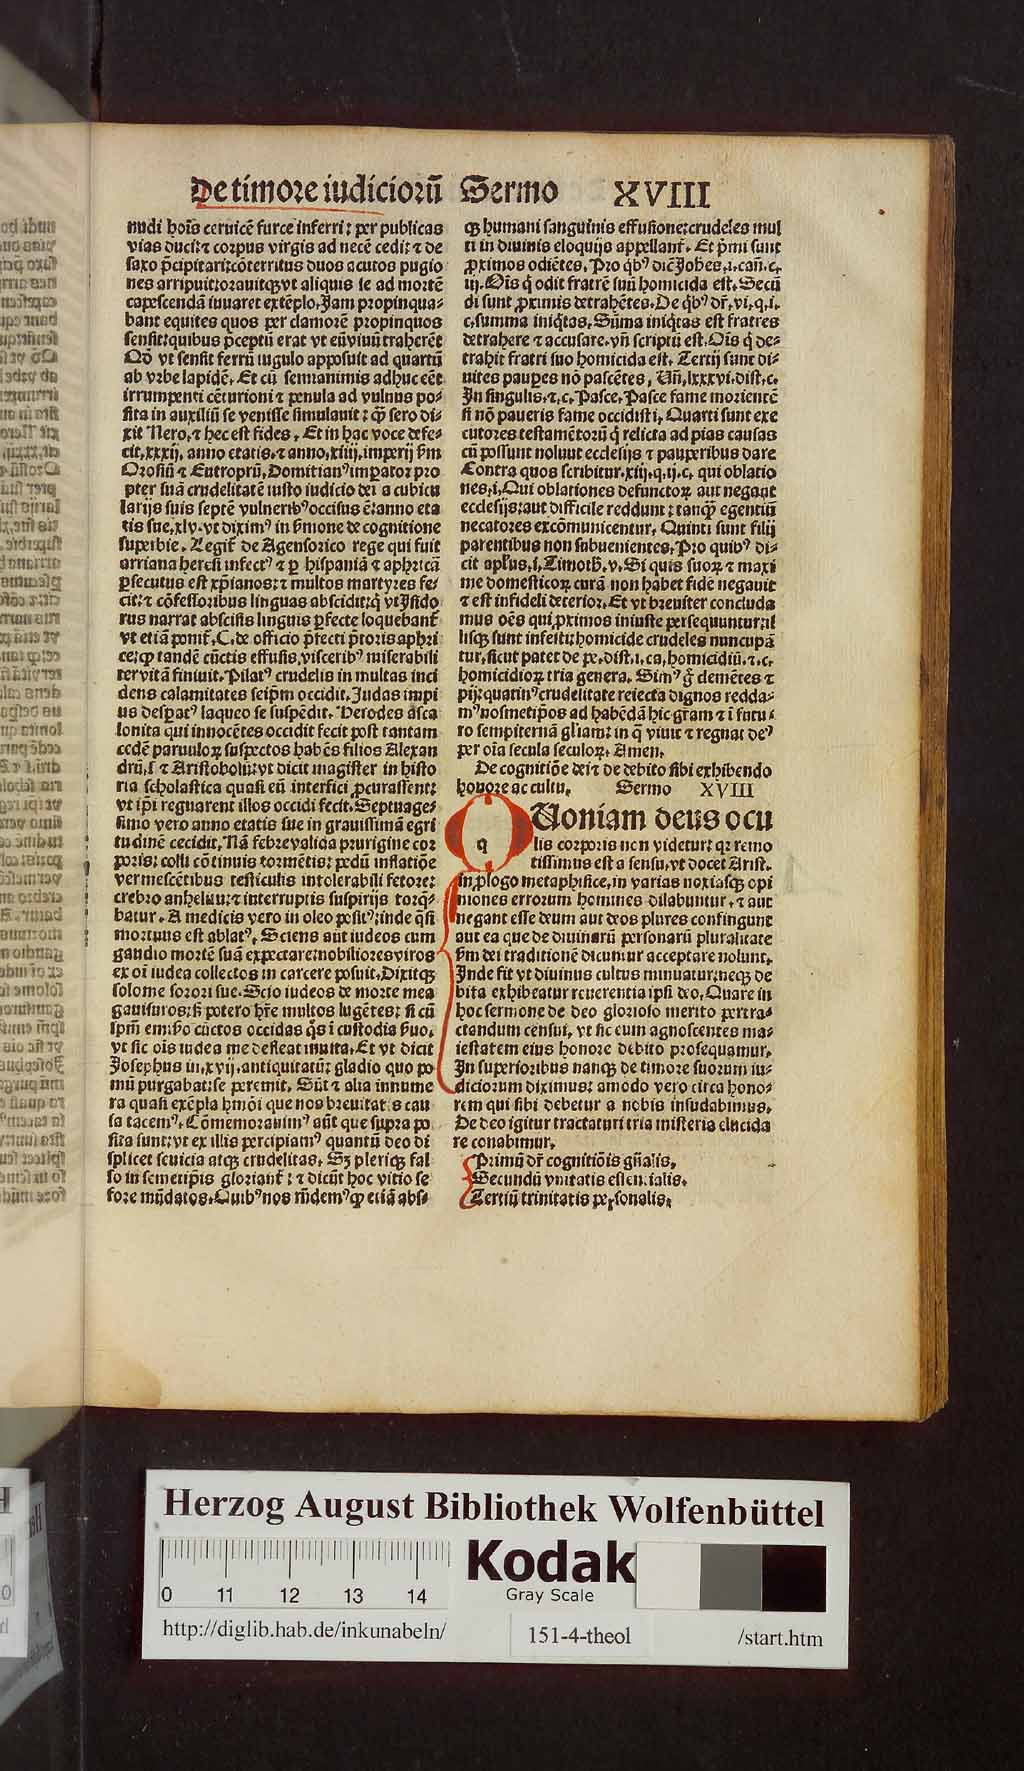 De timore iudiciorū Sermo XVIII
nudi hoīs ceruicē furce inferri: per publicas
vias duci: ⁊ corpus virgis ad necē cedi: ⁊ de
saxo p̄cipitari: cōterritus duos acutos pugio
nes arripuit: orauitqꝫ vt aliquis se ad mortē
capescendā iuuaret extēplo. Jam propinqua⸗
bant equites quos per clamorē propinquos
sensit: quibus p̄ceptū erat vt eū viuū traherēt
Qd̄ vt sensit ferrū iugulo apposuit ad quartū
ab vrbe lapidē. Et cū semianimis adhuc eēt
irrumpenti cēturioni ⁊ penula ad vulnus po⸗
sita in auxiliū se venisse simulauit: qͥ sero di⸗
xit Nero, ⁊ hec est fides. Et in hac voce defe⸗
cit. xxxij. anno etatis. ⁊ anno. xiiij. imperij ẜm
Orosiū ⁊ Eutropiū. Domitianꝰ imꝑator pro
pter suā crudelitatē iusto iudicio dei a cubicu
larijs suis septē vulneribꝰ occisus ē: anno eta
tis sue. xlv. vt diximꝰ in ẜmone de cognitione
superbie. Legit̄ de Agensorico rege qui fuit
arriana heresi infectꝰ ⁊ ꝑ hispaniā ⁊ aphricā
ꝑsecutus est xp̄ianos: ⁊ multos martyres fe⸗
cit: ⁊ cōfessoribus linguas abscidit: qͥ vt Isido
rus narrat abscisis linguis ꝑfecte loquebant̄
vt etiā ponit̄. C. de officio p̄fecti p̄toris aphri
ce: ꝙ tandē cūctis effusis visceribꝰ miserabili
ter vitā finiuit. Pilatꝰ crudelis in multas inci
dens calamitates seip̄m occidit. Judas impi
us desperatꝰ laqueo se suspēdit. Herodes asca
lonita qui innocētes occidit fecit post tantam
cedē paruuloꝝ suspectos habēs filios Alexan
drū. s. ⁊ Aristobolū: vt dicit magister in histo
ria scholastica quasi eū interfici ꝓcurassent:
vt ip̄i regnarent illos occidi fecit. Septuage⸗
simo vero anno etatis sue in grauissimā egri
tudinē cecidit. Nā febre valida prurigine cor
poris: colli cōtinuis tormētis: pedū inflatiōe
vermescētibus testiculis intolerabili fetore:
crebro anhelitu: ⁊ interruptis suspirijs torq̄⸗
batur. A medicis vero in oleo positꝰ: inde q̄si
mortuus est ablatꝰ. Sciens aūt iudeos cum
gaudio mortē suā expectare: nobiliores viros
ex oī iudea collectos in carcere posuit. Dixitqꝫ
solome sorori sue. Scio iudeos de morte mea
gauisuros: sꝫ potero hr̄e multos lugētes: si cū
ip̄m emisero cūctos occidas q̄s ī custodia ẜuo,
vt sic oīs iudea me defleat inuita. Et vt dicit
Josephus in. xvij. antiquitatū: gladio quo po
mū purgabat: se peremit. Sūt ⁊ alia innume
ra quasi exēpla hmōi que nos breuitatis cau
sa tacemꝰ. Cōmemorauimꝰ aūt que supra po
sita sunt: vt ex illis percipiamꝰ quantū deo di
splicet seuicia atqꝫ crudelitas. Sꝫ pleriqꝫ fal
so in semetip̄is gloriant̄: ⁊ dicūt hoc vitio se
fore mūdatos. Quibꝰ nos rn̄demꝰ ꝙ etiā abs⸗
qꝫ humani sanguinis effusione: crudeles mul
ti in diuinis eloquijs appellant̄. Et p̄mi sunt
ꝓximos odiētes. Pro qͥbꝰ dic̄ Joh̄es. i. cań. c.
iij. Oīs qͥ odit fratrē suū homicida est. Secū
di sunt ꝓximis detrahētes. De qͥbꝰ dr̄. vi. q. i.
c. summa iniqͥtas. Sūma iniqͥtas est fratres
detrahere ⁊ accusare. vn̄ scriptū est. Oīs qͥ de⸗
trahit fratri suo homicida est. Tertij sunt di⸗
uites pauꝑes nō pascētes. Vn̄. lxxxvi. dist. c.
In singulis. ⁊. c. Pasce. Pasce fame morientē
si nō paueris fame occidisti. Quarti sunt exe
cutores testamētorū qͥ relicta ad pias causas
cū possunt nolunt ecclesijs ⁊ pauperibus dare
Contra quos scribitur. xiij. q. ij. c. qui oblatio
nes. i. Qui oblationes defunctoꝝ aut negant
ecclesijs: aut difficile reddunt: tanqͣꝫ egentiū
necatores excōmunicentur. Quinti sunt filij
parentibus non subuenientes. Pro quibꝰ di⸗
cit apl̄us. i. Timoth. v. Si quis suoꝝ ⁊ maxi
me domesticoꝝ curā non habet fidē negauit
⁊ est infideli deterior. Et vt breuiter concluda
mus oēs qui ꝓximos iniuste persequuntur: il
lisqꝫ sunt infesti: homicide crudeles nuncupā
tur. sicut patet de pe. dist. i. ca. homicidiū. ⁊. c.
homicidioꝝ tria genera. Simꝰ g̊ clemētes ⁊
pij: quatinꝰ crudelitate reiecta dignos redda⸗
mꝰ nosmetip̄os ad habēdā hic gram̄ ⁊ ī futu⸗
ro sempiternā gl̄iam: in qͣ viuit ⁊ regnat deꝰ
per oīa secula seculoꝝ. Amen.
De cognitiōe dei: ⁊ de debito sibi exhibendo
honore ac cultu. Sermo XVIII
q
QUoniam deus ocu
lis corporis non videtur: qꝛ remo
tissimus est a sensu, vt docet Arist.
in ꝓlogo metaphisice, in varias noxiasqꝫ opi
niones errorum homines dilabuntur. ⁊ aut
negant esse deum aut deos plures confingunt
aut ea que de diuinarū personarū pluralitate
ẜm dei traditionē dicuntur acceptare nolunt.
Inde fit vt diuinus cultus minuatur: neqꝫ de
bita exhibeatur reuerentia ipsi deo. Quare in
hoc sermone de deo glorioso merito pertra⸗
ctandum censui, vt sic eum agnoscentes ma⸗
iestatem eius honore debito prosequamur.
In superioribus nanqꝫ de timore suorum iu⸗
diciorum diximus: amodo vero circa hono⸗
rem qui sibi debetur a nobis insudabimus.
De deo igitur tractaturi tria misteria elucida
re conabimur.
Primū dr̄ cognitiōis gn̄alis.
Secundū vnitatis essentialis.
Tertiū trinitatis personalis.
Herzog August Bibliothek Wolfenbüttel
0 11 12 13 14
Kodak
Gray Scale
http://diglib.hab.de/inkunabeln/
151-4-theol
/start.htm